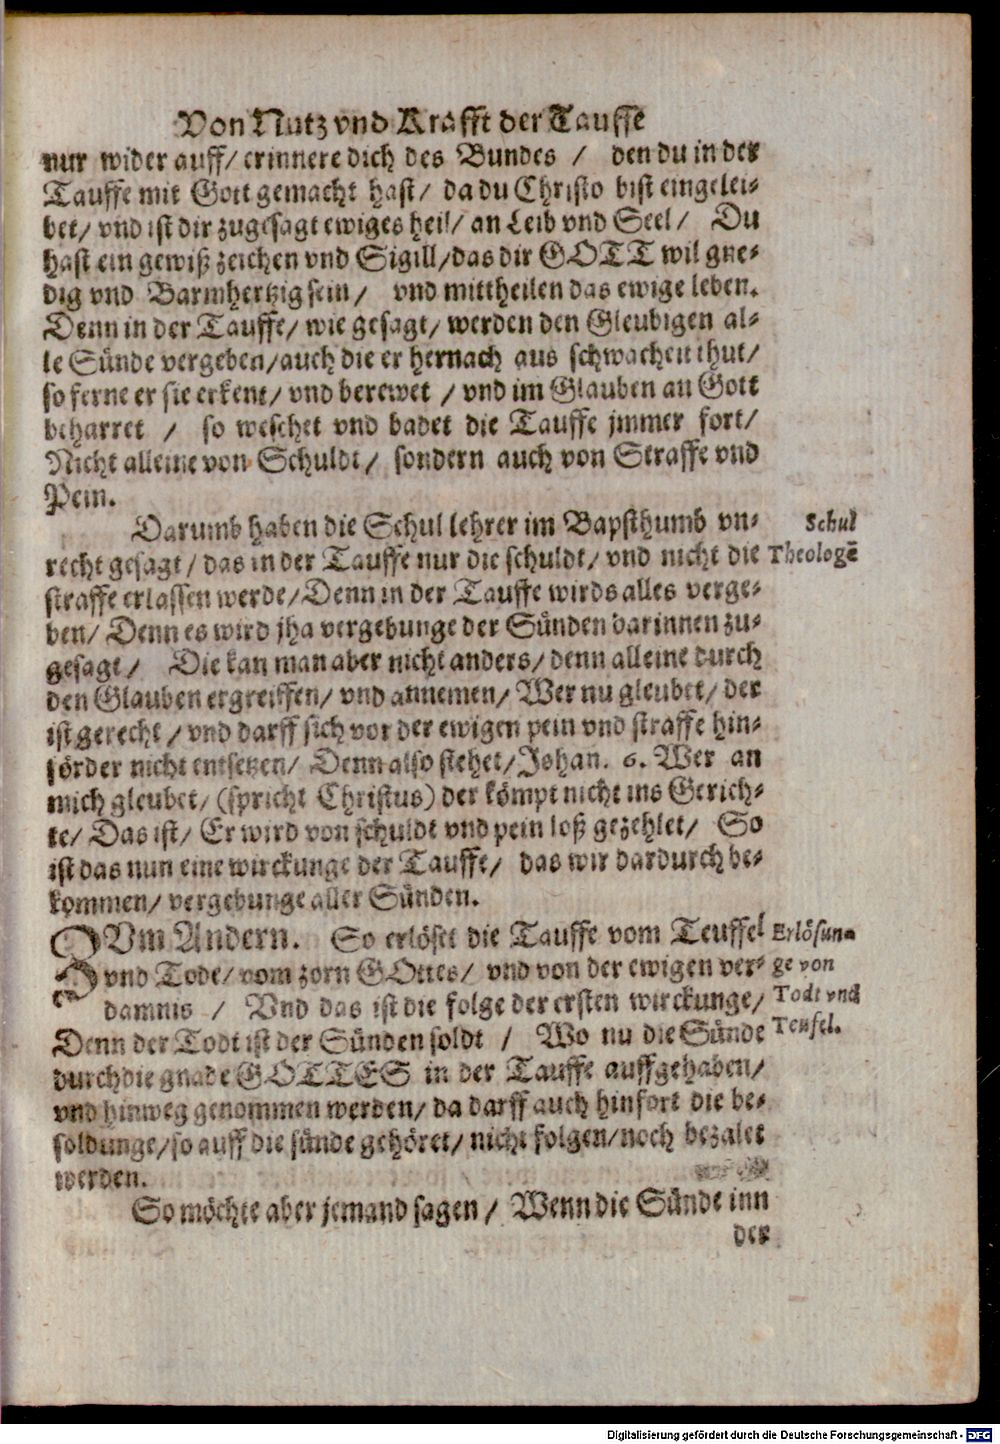 Von Nutz vnd Krafft der Tauffe
nur wider auff/ erinnere dich des Bundes / den du in der
Tauffe mit Gott gemacht hast/ da du Christo bist eingelei-
bet/ vnd ist dir zugesagt ewiges heil/ an Leib vnd Seel/ Du
hast ein gewiß zeichen vnd Sigill/das dir GOTT wil gne-
dig vnd Barmhertzig sein/ vnd mittheilen das ewige leben.
Denn in der Tauffe/ wie gesagt/ werden den Gleubigen al-
le Sünde vergeben/auch die er hernach aus schwacheit thut/
so ferne er sie erkent/ vnd berewet / vnd im Glauben an Gott
beharret / so weschet vnd badet die Tauffe jmmer fort/
Nicht alleine von Schuldt/ sondern auch von Straffe vnd
Pein.
Darumb haben die Schul lehrer im Bapsthumb vn-
recht gesagt/ das in der Tauffe nur die schuldt/ vnd nicht die
straffe erlassen werde/Denn in der Tauffe wirds alles verge-
ben/ Denn es wird jha vergebunge der Sünden darinnen zu-
gesagt/ Die kan man aber nicht anders/ denn alleine durch
den Glauben ergreiffen/ vnd annemen/ Wer nu gleubet/ der
ist gerecht/ vnd darff sich vor der ewigen pein vnd straffe hin-
förder nicht entsetzen/ Denn also stehet/Johan. 6. Wer an
mich gleubet/ (spricht Christus) der kömpt nicht ins Gerich-
te/ Das ist/ Er wird von schuldt vnd pein loß gezehlet/ So
ist das nun eine wirckunge der Tauffe/ das wir dardurch be-
kommen/ vergebunge aller Sünden.
ZVm Andern. So erlöset die Tauffe vom Teuffel
vnd Tode/ vom zorn GOttes/ vnd von der ewigen ver-
damnis / Vnd das ist die folge der ersten wirckunge/
Denn der Todt ist der Sünden soldt / Wo nu die Sünde
durch die gnade GOTTES in der Tauffe auffgehaben/
vnd hinweg genommen werden/ da darff auch hinfort die be-
soldunge/so auff die sünde gehöret/ nicht folgen/noch bezalet
werden.
So möchte aber jemand sagen/ Wenn die Sünde inn
der
Schul
Theologē
Erlösun-
ge von
Todt vnd
Teufel.
Digitalisierung gefördert durch die Deutsche Forschungsgemeinschaft - DFG